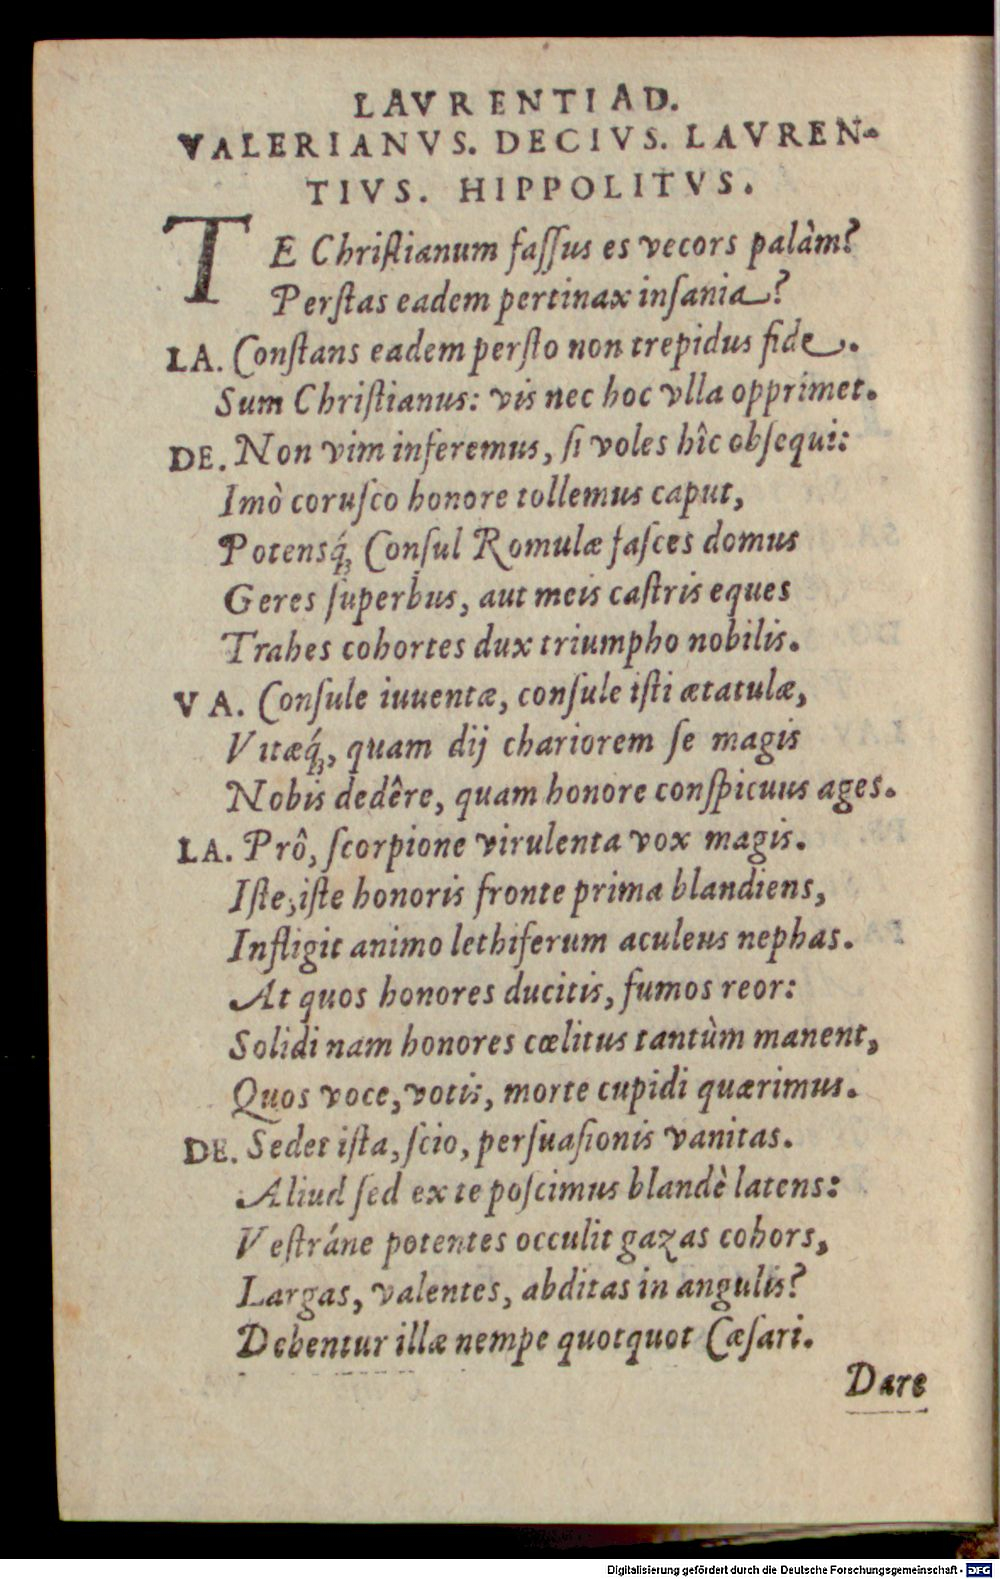 LAVRENTIAD.
VALERIANVS. DECIVS. LAVREN-
TIVS. HIPPOLITVS.
TE Christianum fassus es vecors palàm?
Perstas eadem pertinax insania?
LA. Constans eadem persto non trepidus fide.
Sum Christianus: vis nec hoc vlla opprimet.
DE. Non vim inferemus, si voles hîc obsequi:
Imò corusco honore tollemus caput,
Potensq́; Consul Romulæ fasces domus
Geres superbus, aut meis castris eques
Trahes cohortes dux triumpho nobilis.
VA. Consule iuuentæ, consule isti ætatulæ,
Vitæq́;, quam dij chariorem se magis
Nobis dedêre, quam honore conspicuus ages.
LA. Prô, scorpione virulenta vox magis.
Iste, iste honoris fronte prima blandiens,
Infligit animo lethiferum aculeus nephas.
At quos honores ducitis, fumos reor:
Solidi nam honores cœlitus tantùm manent,
Quos voce, votis, morte cupidi quærimus.
DE. Sedet ista, scio, persuasionis vanitas.
Aliud sed ex te poscimus blandè latens:
Vestráne potentes occulit gazas cohors,
Largas, valentes, abditas in angulis?
Debentur illæ nempe quotquot Cæsari.
Dare
Digitalisierung gefördert durch die Deutsche Forschungsgemeinschaft - DFG